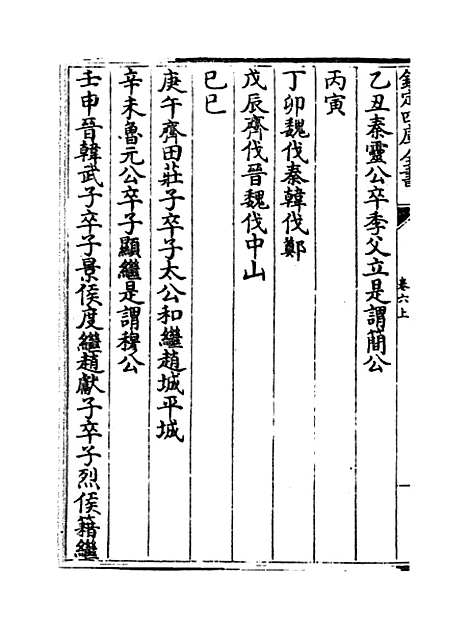 欽定四庫全書
卷六上
乙丑秦靈公卒季父立是謂簡公
丙寅
丁卯魏伐秦韓伐鄭
戊辰齊伐晉魏伐中山
己巳
庚午齊田莊子卒子太公和繼趙城平城
辛未魯元公卒子顯繼是謂穆公
壬申晉韓武子卒子景侯度繼趙獻子卒子烈侯籍繼